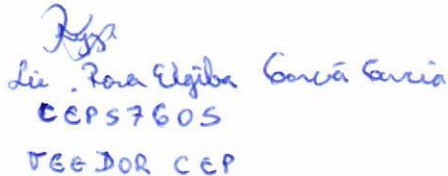 Lic. Rosa Elgiba García García
CEP57605
VEEDOR CEP